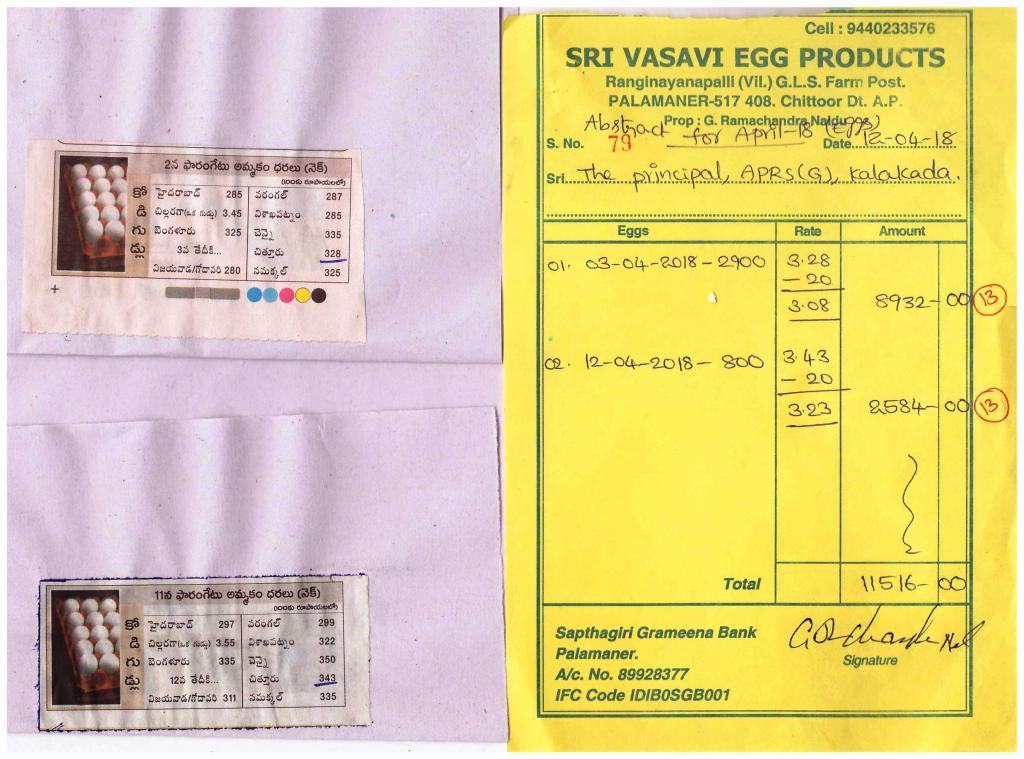 2న ఫారంగేటు అమ్మకం ధరలు (నెక్)
(100కు రూపాయలలో)
కోడి గుడ్లు
హైదరాబాద్ 285 వరంగల్ 287
చిల్లరగా(ఒక గుడ్డు) 3.45 విశాఖపట్నం 285
బెంగళూరు 325 చెన్నై 335
3వ తేదీకి... చిత్తూరు 328
విజయవాడ/గోదావరి 280 నమక్కల్ 325
11న ఫారంగేటు అమ్మకం ధరలు (నెక్)
(100కు రూపాయలలో)
కోడి గుడ్లు
హైదరాబాద్ 297 వరంగల్ 299
చిల్లరగా(ఒక గుడ్డు) 3.55 విశాఖపట్నం 322
బెంగళూరు 335 చెన్నై 350
12వ తేదీకి... చిత్తూరు 343
విజయవాడ/గోదావరి 311 నమక్కల్ 335
Cell : 9440233576
SRI VASAVI EGG PRODUCTS
Ranginayanapalli (Vil.) G.L.S. Farm Post.
PALAMANER-517 408. Chittoor Dt. A.P.
Prop : G. Ramachandra Naidu
Abstract for April-18 (Eggs)
S. No. 79 Date 12-04-18
Sri. The principal, APRS(G), Kalakada.
Eggs Rate Amount
01. 03-04-2018-2900 3.28
- 20
3.08 8932-00 13
02. 12-04-2018-800 3.43
- 20
3.23 2584-00 13
Total 11516-00
Sapthagiri Grameena Bank
Palamaner.
A/c. No. 89928377
IFC Code IDIB0SGB001
Signature